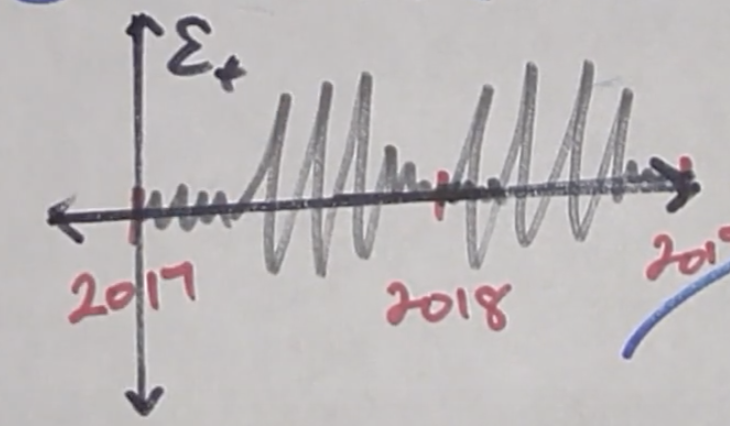 Ɛₜ
2017
2018
201